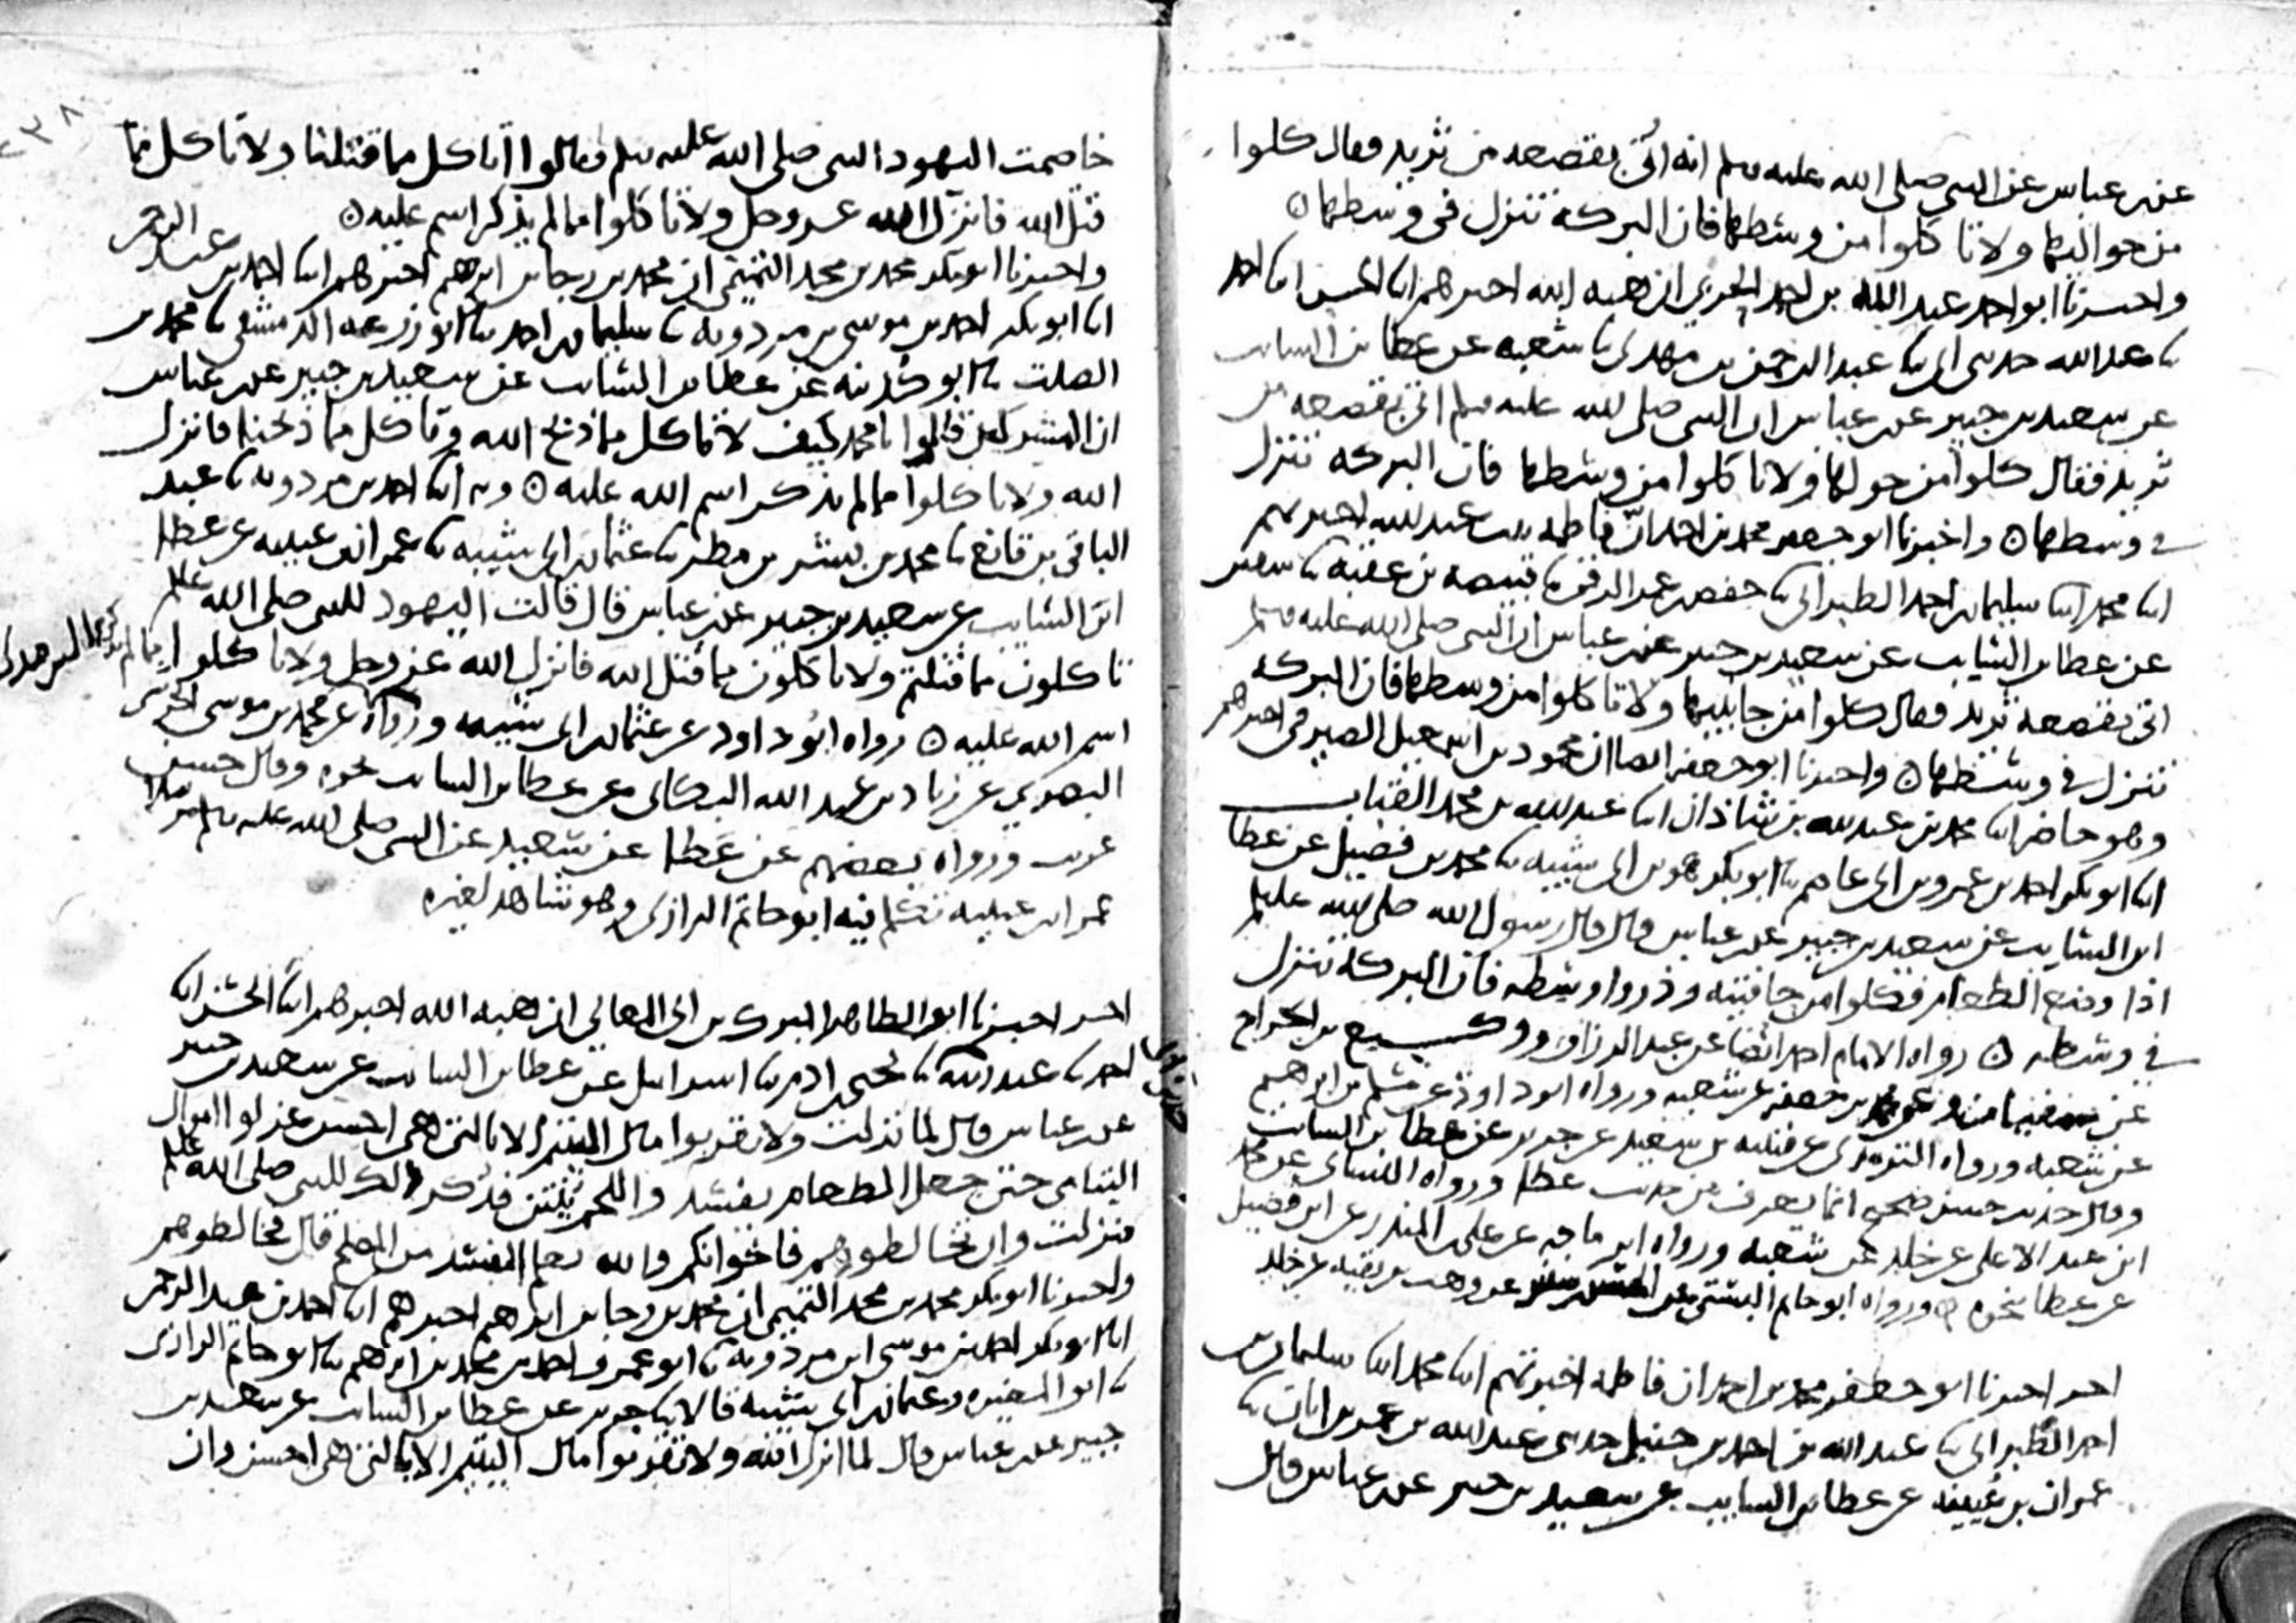 عن ابن عباس عن النبي صلى الله عليه وسلم انه اتي بقصعه من ثريد فقال كلوا
من حواليها ولا تاكلوا من وسطها فان البركه تنزل في وسطها ه
واخبرنا ابو احمد عبد الله بن احمد الحربي ان هبه الله اخبرهم ابنا الحسن ابنا احمد
ثنا عبد الله حدثني ابي ثنا عبد الرحمن بن مهدي ثنا شعبه عن عطا بن السايب
عن سعيد بن جبير عن ابن عباس ان النبي صلى الله عليه وسلم اتي بقصعه من
ثريد فقال كلوا من حولها ولا تاكلوا من وسطها فان البركه تنزل
في وسطها ه واخبرنا ابو جعفر محمد بن احمد ان فاطمه بنت عبد الله اخبرتهم
ابنا محمد ابنا سليمان بن احمد الطبراني ثنا حفص بن عمر الرقي ثنا قبيصه بن عقبه ثنا سفين
عن عطا بن السايب عن سعيد بن جبير عن ابن عباس ان النبي صلى الله عليه وسلم
اتي بقصعه ثريد فقال كلوا من جانبيها ولا تاكلوا من وسطها فان البركه
تنزل في وسطها ه واخبرنا ابو جعفر ايضا ان محمود بن اسمعيل الصيرفي اخبرهم
وهو حاضر ابنا محمد بن عبد الله بن شاذان ابنا عبد الله بن محمد القباب
ابنا ابو بكر احمد بن عمرو بن ابي عاصم ثنا ابو بكر هو بن ابي شيبه ثنا محمد بن فضيل عن عطا
ابن السايب عن سعيد بن جبير عن ابن عباس قال قال رسول الله صلى الله عليه وسلم
اذا وضع الطعام فكلوا من حافتيه وذروا وسطه فان البركه تنزل
في وسطه ه رواه الامام احمد ايضا عن عبد الرزاق ووكيع بن الجراح
عن سفين وعن محمد بن جعفر عن شعبه ورواه ابو داود عن مسلم بن ابرهيم
عن شعبه ورواه الترمذي عن قتيبه بن سعيد عن جرير عن عطا بن السايب
وقال حديث حسن صحيح انما يعرف من حديث عطا ورواه النساي عن محمد
ابن عبد الاعلى عن خلد عن شعبه ورواه ابن ماجه عن علي بن المنذر عن ابن فضيل
عن عطا نحوه ه ورواه ابو حاتم البستي عن وهب بن بقيه عن خلد
اخر اخبرنا ابو جعفر محمد بن احمد ان فاطمه اخبرتهم ابنا محمد ابنا سليمان بن
احمد الطبراني ثنا عبد الله بن احمد بن حنبل حدثني عبد الله بن عمر بن ابان ثنا
عمران بن عيينه عن عطا بن السايب عن سعيد بن جبير عن ابن عباس قال
٢٣٨
خاصمت اليهود النبي صلى الله عليه وسلم فقالوا اناكل مما قتلنا ولا ناكل مما
قتل الله فانزل الله عز وجل ولا تاكلوا مما لم يذكر اسم عليه ه
واخبرنا ابو بكر محمد بن محمد التميمي ان محمد بن رجا بن ابرهيم اخبرهم ابنا احمد بن عبد الرحمن
ابنا ابو بكر احمد بن موسى بن مردويه ثنا سليمان بن احمد ثنا ابو زرعه الدمشقي ثنا محمد بن
الصلت ثنا ابو كدينه عن عطا بن السايب عن سعيد بن جبير عن ابن عباس
ان المشركين قالوا يا محمد كيف لا تاكل مما ذبح الله وتاكل مما ذبحنا فانزل
الله ولا تاكلوا مما لم يذكر اسم الله عليه ه وبه ابنا احمد بن مردويه ثنا عبد
الباقي بن قانع ثنا محمد بن بشر بن مطر ثنا عثمان بن ابي شيبه ثنا عمران بن عيينه عن عطا
ابن السايب عن سعيد بن جبير عن ابن عباس قال قالت اليهود للنبي صلى الله عليه وسلم
تاكلون مما قتلتم ولا تاكلون مما قتل الله فانزل الله عز وجل ولا تاكلوا مما لم يذكر
اسم الله عليه ه رواه ابو داود عن عثمان بن ابي شيبه ورواه الترمذي عن محمد بن موسى الحرشي
البصري عن زياد بن عبد الله البكاي عن عطا بن السايب نحوه وقال حسن
غريب ورواه بعضهم عن عطا عن سعيد عن النبي صلى الله عليه وسلم مرسلا
عمران بن عيينه تكلم فيه ابو حاتم الرازي وهو شاهد لغيره
اخر اخبرنا ابو الطاهر المبارك بن ابي المعالي ان هبه الله اخبرهم ابنا الحسن ابنا
احمد ثنا عبد الله حدثني ابي ثنا يحيى بن ادم ثنا اسرايل عن عطا بن السايب عن سعيد بن جبير
عن ابن عباس قال لما نزلت ولا تقربوا مال اليتيم الا بالتي هي احسن عزلوا اموال
اليتامى حتى جعل الطعام يفسد واللحم ينتن فذكر ذلك للنبي صلى الله عليه وسلم
فنزلت وان تخالطوهم فاخوانكم والله يعلم المفسد من المصلح قال فخالطوهم
واخبرنا ابو بكر محمد بن محمد التميمي ان محمد بن رجا بن ابراهيم اخبرهم ابنا احمد بن عبد الرحمن
ابنا ابو بكر احمد بن موسى ابن مردويه ثنا ابو عمرو احمد بن محمد بن ابرهيم ثنا ابو حاتم الرازي
ثنا ابن المغيره وعثمان بن ابي شيبه قالا ثنا جرير عن عطا بن السايب عن سعيد بن
جبير عن ابن عباس قال لما انزل الله ولا تقربوا مال اليتيم الا بالتي هي احسن وان